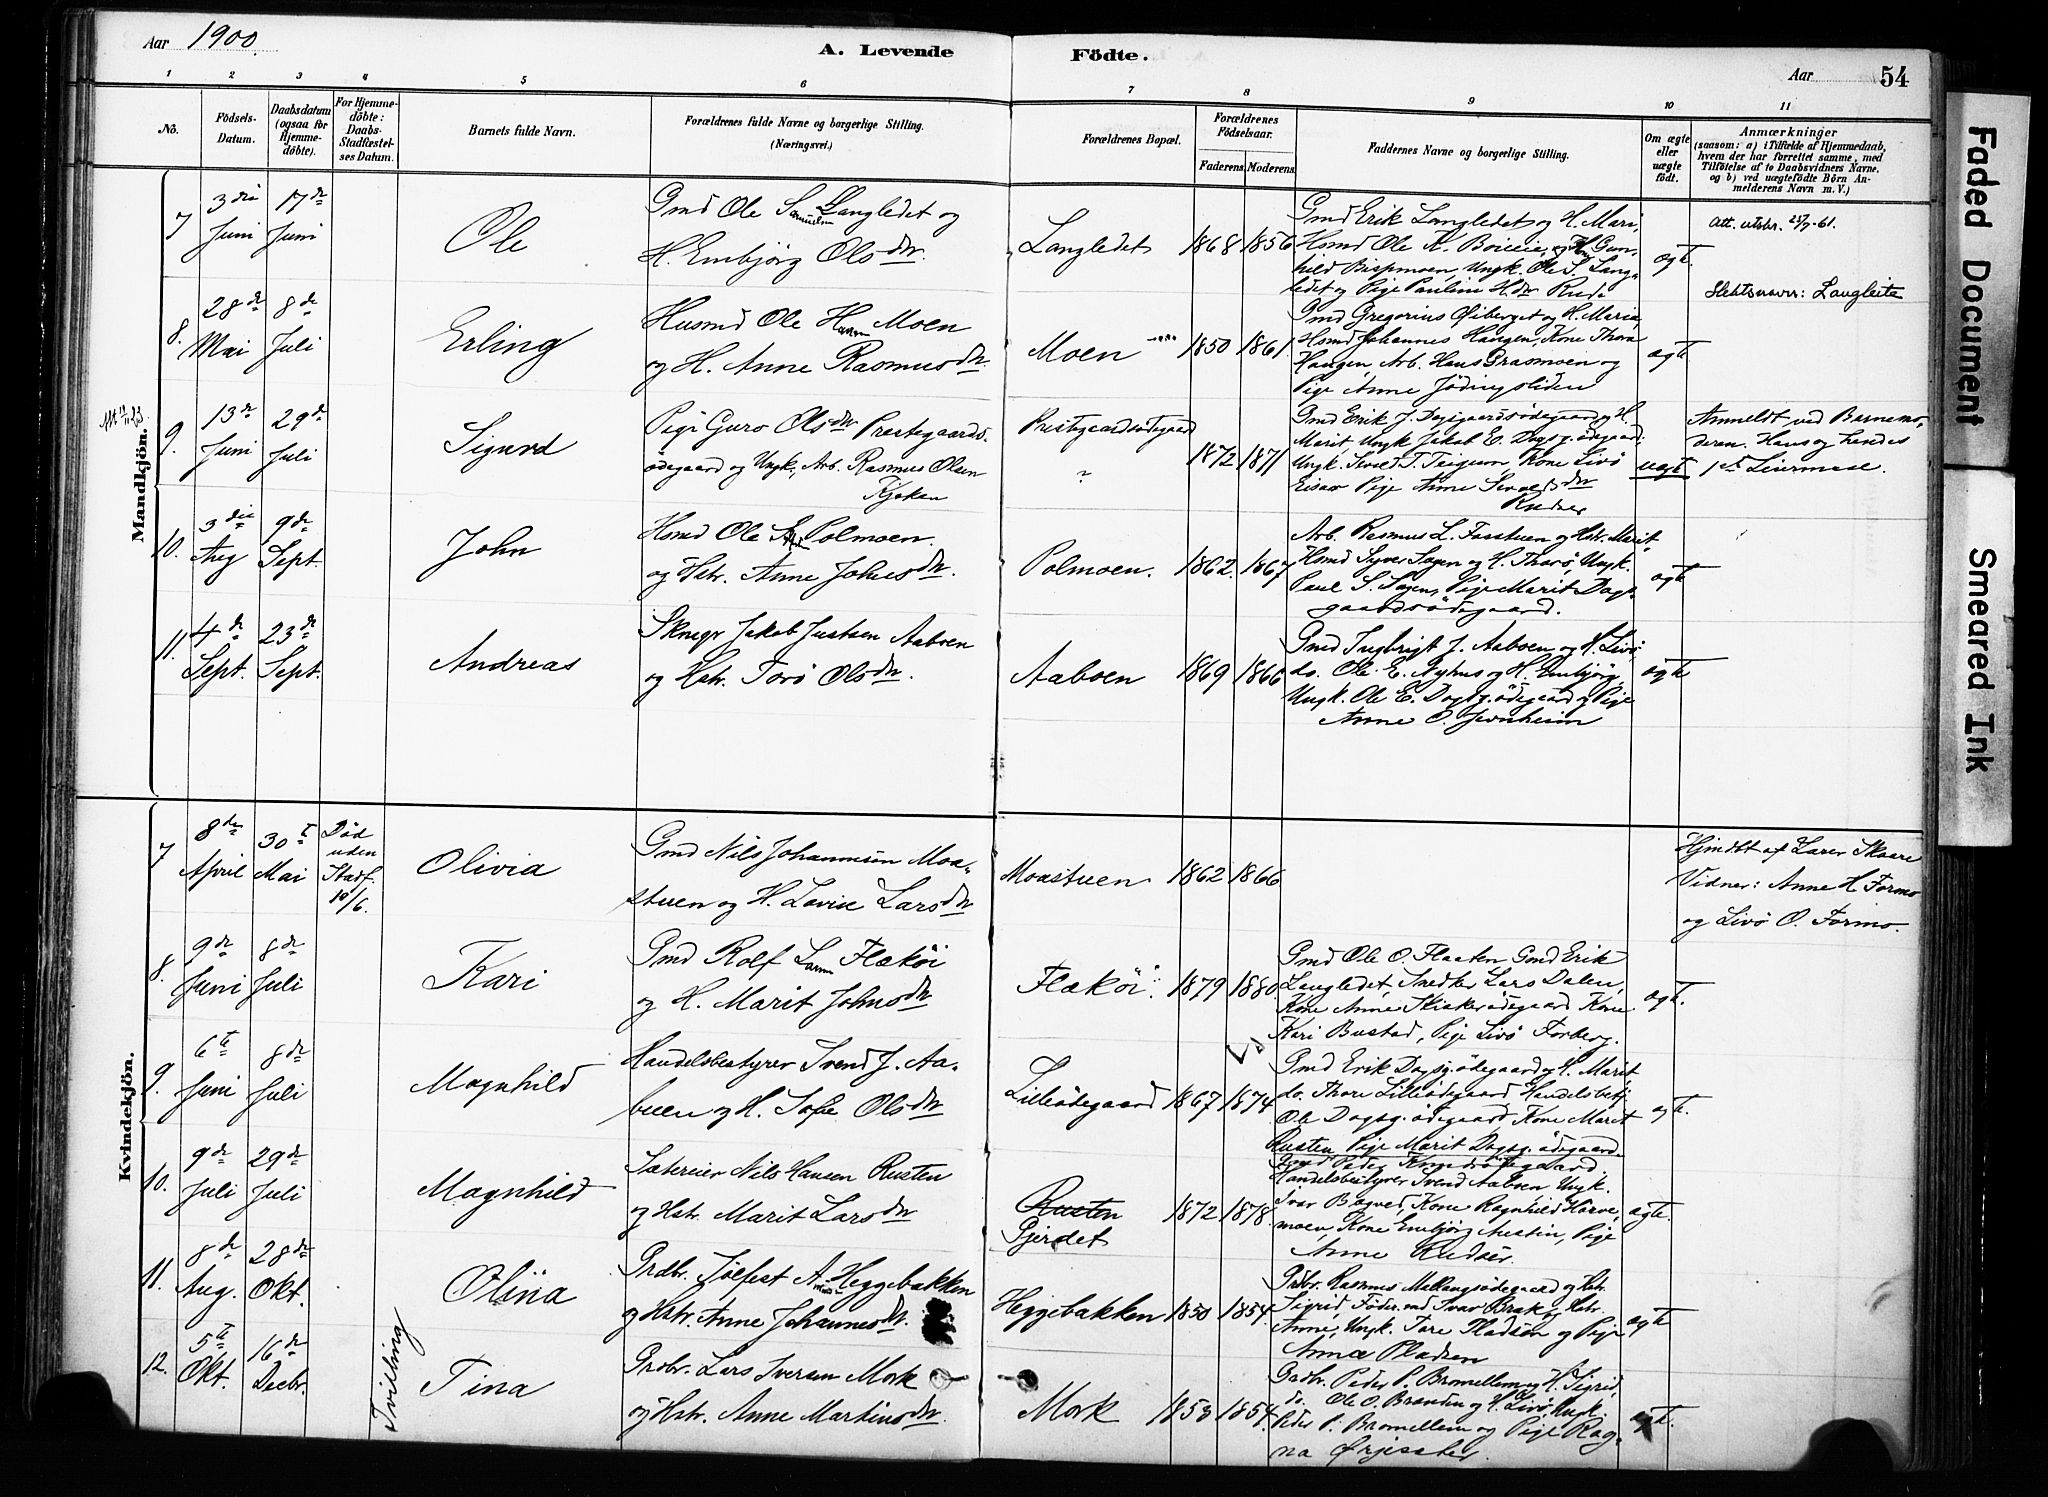 Aar 1900.
A. Levende
Födte.
Aar
54
1 2 3 4 5 6 7 8 9 10 11
No.
Födsels-
Datum.
Daabsdatum
(ogsaa for
Hjemme-
döbte).
For Hjemme-
döbte:
Daabs-
Stadfæstel-
ses Datum.
Barnets fulde Navn.
Forældrenes fulde Navne og borgerlige Stilling.
(Næringsvei.)
Forældrenes Bopæl.
Forældrenes
Födselsaar.
Faderens.
Moderens.
Faddernes Navne og borgerlige Stilling.
Om ægte
eller
uægte
födt.
Anmærkninger
(saasom: a) i Tilfælde af Hjemmedaab,
hvem der har forrettet samme, med
Tilföielse af to Daabsvidners Navne,
og b) ved uægtefödte Börn An-
melderens Navn m. V.)
Mandkjön.
7
3die
Juni
17de
Juni
Ole
Gmd Ole Samuelsen Langledet og
H. Embjörg Olsdtr.
Langledet
1868
1856
Gmd Erik Langledet og H. Mari,
Hsmd Ole K.
hild Bispmoen, Ungk. Ole S. Lang-
ledet og Pige Pauline H.dtr Rude
ægt.
Att. utskr. 25/9-61.
Slektsnavn: Langleite
8.
28de
Mai
8de
Juli
Erling
Husmd Ole Hansen Moen
og H. Anne Rasmusdtr.
Moen
1850
1861
Gmd Gregorius Öiberget og H. Maria,
Hsmd Johannes Haugen, Kone Thora
Haugen, Arb. Hans Grasmoen og
Pige Anne Jödingsliden
ægt.
9.
13de
Juni
29de
Juli
Sigurd
Pige Guro Olsdtr Prestegaards-
ödegaard og Ungk. Arb. Rasmus Olsen
Kjöken
Prestgaardsödegaard
?
1872
1871
Gmd Erik J. Dagsgaardsödegaard og H.
Marit Ungk Jakob E. Dagsg.ödegaard
Ungk. Siver T. Teigum, Kone Livö
Pige Anne
uægt
Anmeldt ved Barnemo-
deren. Hans og hendes
1ste Leiermaal.
10.
3die
Aug
9de
Sept.
John
Hsmd Ole Polmoen
og Hstr. Anne Johnsdtr.
Polmoen.
1862.
1867
Arb. Rasmus L. Fosstuen og Hstr. Marit,
Hsmd Syver Sagen og H. Thorö, Ungk.
Paul S. Sagen, Pige Marit Dags-
gaardsödegaard.
ægt.
11.
4de
Sept.
23de
Sept.
Andreas
Skrugr Jakob Justsen Aaboen
og Hstr. Torö Olsdtr.
Aaboen
1869
1866
Gmd Ingbrigt J. Aaboen og H. Livö,
do. Ole E. Nyhus og H. Embjörg,
Ungk. Ole E. Dagsg.ödegaard og Pige
Anne O. Jernheim
ægt.
Kvindekjön.
7
8de
April
30te
Mai
Död
uden
Stadf.
10/6.
Olivia
Gmd Nils Johannesen Moa-
stuen og H. Lovise Larsdtr
Moastuen
1862
1866
Hjmdbt af Lærer Skaare
Vidner: Anne H. Formo
og Livö O. Formo.
8.
9de
Juni
8de
Juli
Kari
Gmd Rolf Larsen Flæköi
og H. Marit Johnsdtr
Flæköi.
1879
1880
Gmd Ole O. Flaaten Gmd Erik
Langledet, Snedker Lars Dalen,
Kone Anne Skjakerödegaard Kone
Kari Bustad, Pige Livö Forberg.
ægt.
9.
6te
Juni
8de
Juli
Magnhild
Handelsbestyrer Svend J. Aa-
boen og H. Sofie Olsdtr
Lilleödegaard
1867
1874
Gmd Erik Dagsg.ödegaard og H. Marit,
do. Thore Lilleödegaard Handelsbetj.
Ole Dagsg.ödegaard, Kone Marit
Rusten Pige Marit Dagsg.ödegaard
ægt.
10.
9de
Juli
29de
Juli
Magnhild
Sætereier Nils Hansen Rusten
og Hstr. Marit Larsdtr
Rusten
Gjerdet
1872
1878
Gmd Peder
Handelsbestyrer Svend Aaboen Ungk.
Ivar Kone Ragnhild Harve-
moen, Kone Embjörg Pige
Anne Rudser.
ægte.
11.
8de
Aug.
28de
Okt.
Olina
Grdbr. Tölfest Heggebakken
og Hstr. Anne Johannesdtr.
Heggebakken
1850
1854.
Grdbr. Rasmus og Hstr.
Sigrid, Föder.md Ivar Bræk og Hstr.
Anne, Ungk. Tore Pladsen og Pige
Anne Pladsen
ægt
12.
5te
Okt.
16de
Decbr.
Tvilling
Tina
Grdbr. Lars Iversen Mork
og Hstr. Anne Martinusdtr.
Mork
1853
1854.
Grdbr. Peder P. Bromellem og H. Sigrid,
do. Ole O. og H. Livö, Ungk.
Peder P. Bromellem og Pige Rag-
na
ægt.
Faded Document
Smeared Ink